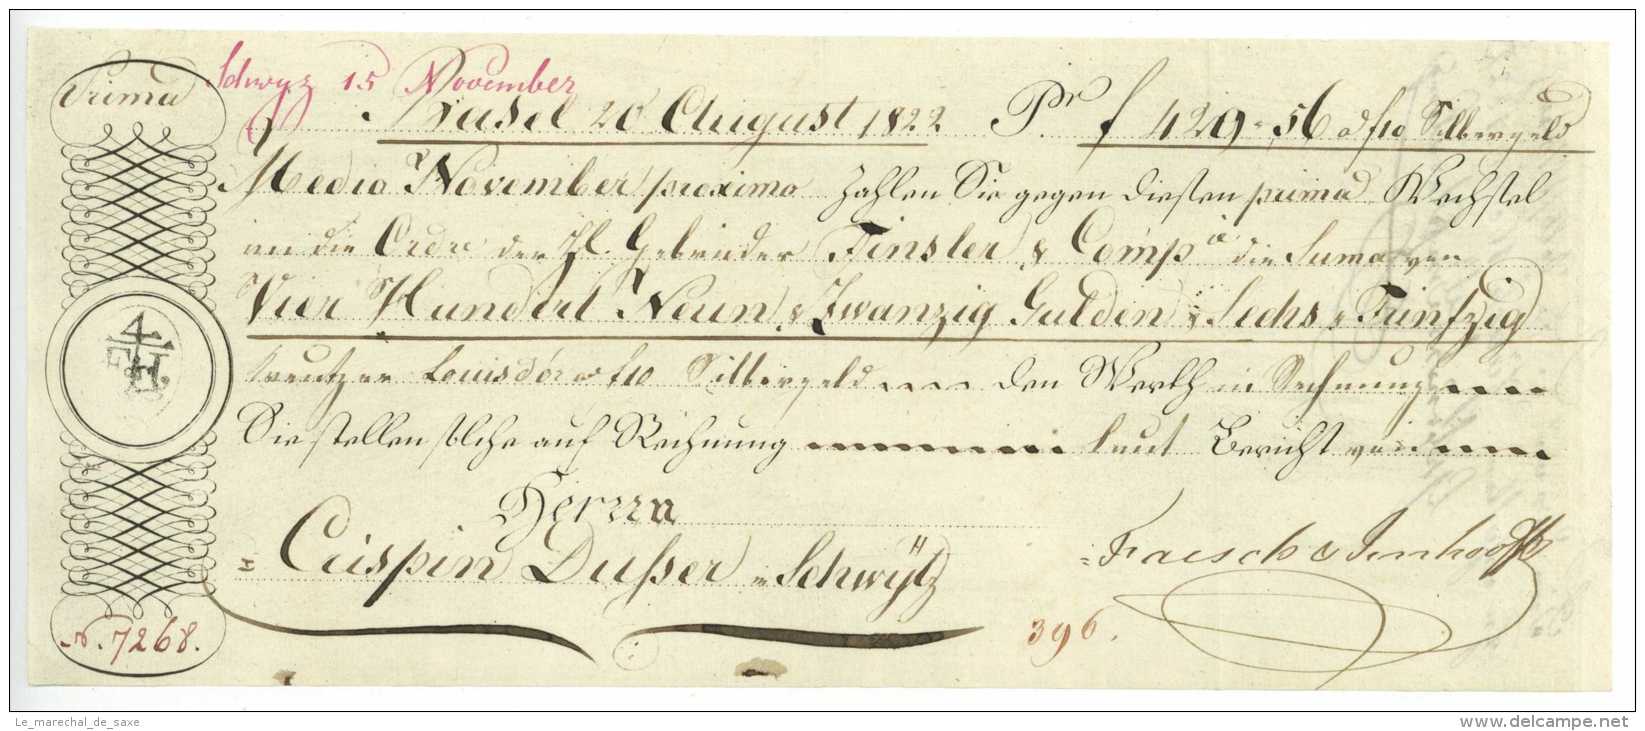 Prima
Schwyz 15 November
Basel 20 August 1822. Pr. f 429 " 56 a f 10 Silbergeld
Medio November proximo zahlen Sie gegen diesen prima Wechsel
an die Ordre der H. Gebrüder Finsler & Comp.ie die Suma von
Vier Hundert Neun & Zwanzig Gulden & Sechs & Fünfzig
Kreutzer Louisd'or a f 10 Silbergeld den Werth in Rechnung
Sie stellen solche auf Rechnung laut Bericht von
Herrn
Crispin Dußer in Schwÿtz
Faesch & Imhooff
4
F & H.
N. 7268.
396.
Le_marechal_de_saxe
www.delcampe.net